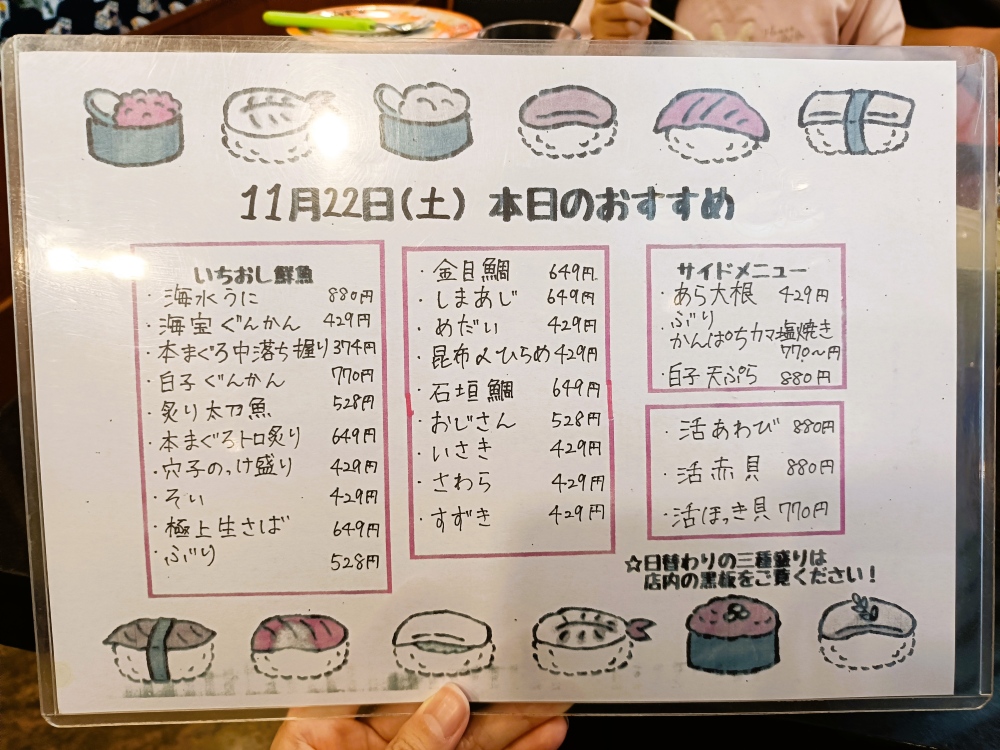 11月22日(土) 本日のおすすめ
いちおし鮮魚
・海水うに 880円
・海宝ぐんかん 429円
・本まぐろ中落ち握り 374円
・白子ぐんかん 770円
・炙り太刀魚 528円
・本まぐろトロ炙り 649円
・穴子のっけ盛り 429円
・そい 429円
・極上生さば 649円
・ぶり 528円
・金目鯛 649円
・しまあじ 649円
・めだい 429円
・昆布〆ひらめ 429円
・石垣鯛 649円
・おじさん 528円
・いさき 429円
・さわら 429円
・すずき 429円
サイドメニュー
・あら大根 429円
・ぶり
かんぱちカマ塩焼き
770〜円
・白子天ぷら 880円
・活あわび 880円
・活赤貝 880円
・活ほっき貝 770円
☆日替わりの三種盛りは
店内の黒板をご覧ください!